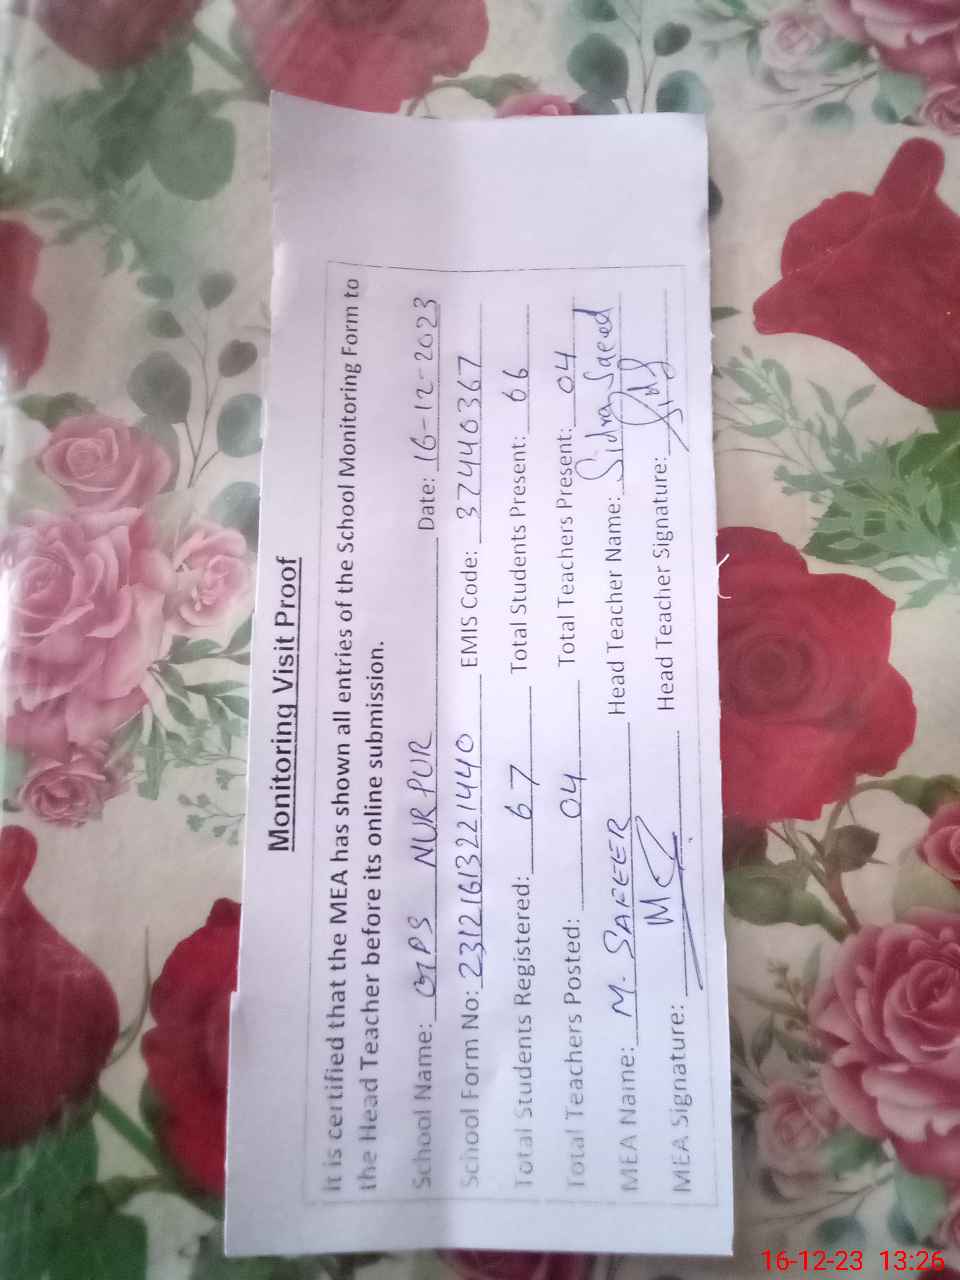 Monitoring Visit Proof
It is certified that the MEA has shown all entries of the School Monitoring Form to
the Head Teacher before its online submission.
School Name: GPS NURPUR Date: 16-12-2023
School Form No: 23121613221440 EMIS Code: 37440367
Total Students Registered: 67 Total Students Present: 66
Total Teachers Posted: 04 Total Teachers Present: 04
MEA Name: M. SAFEER Head Teacher Name: Sidra Saeed
MEA Signature: Head Teacher Signature:
16-12-23 13:26